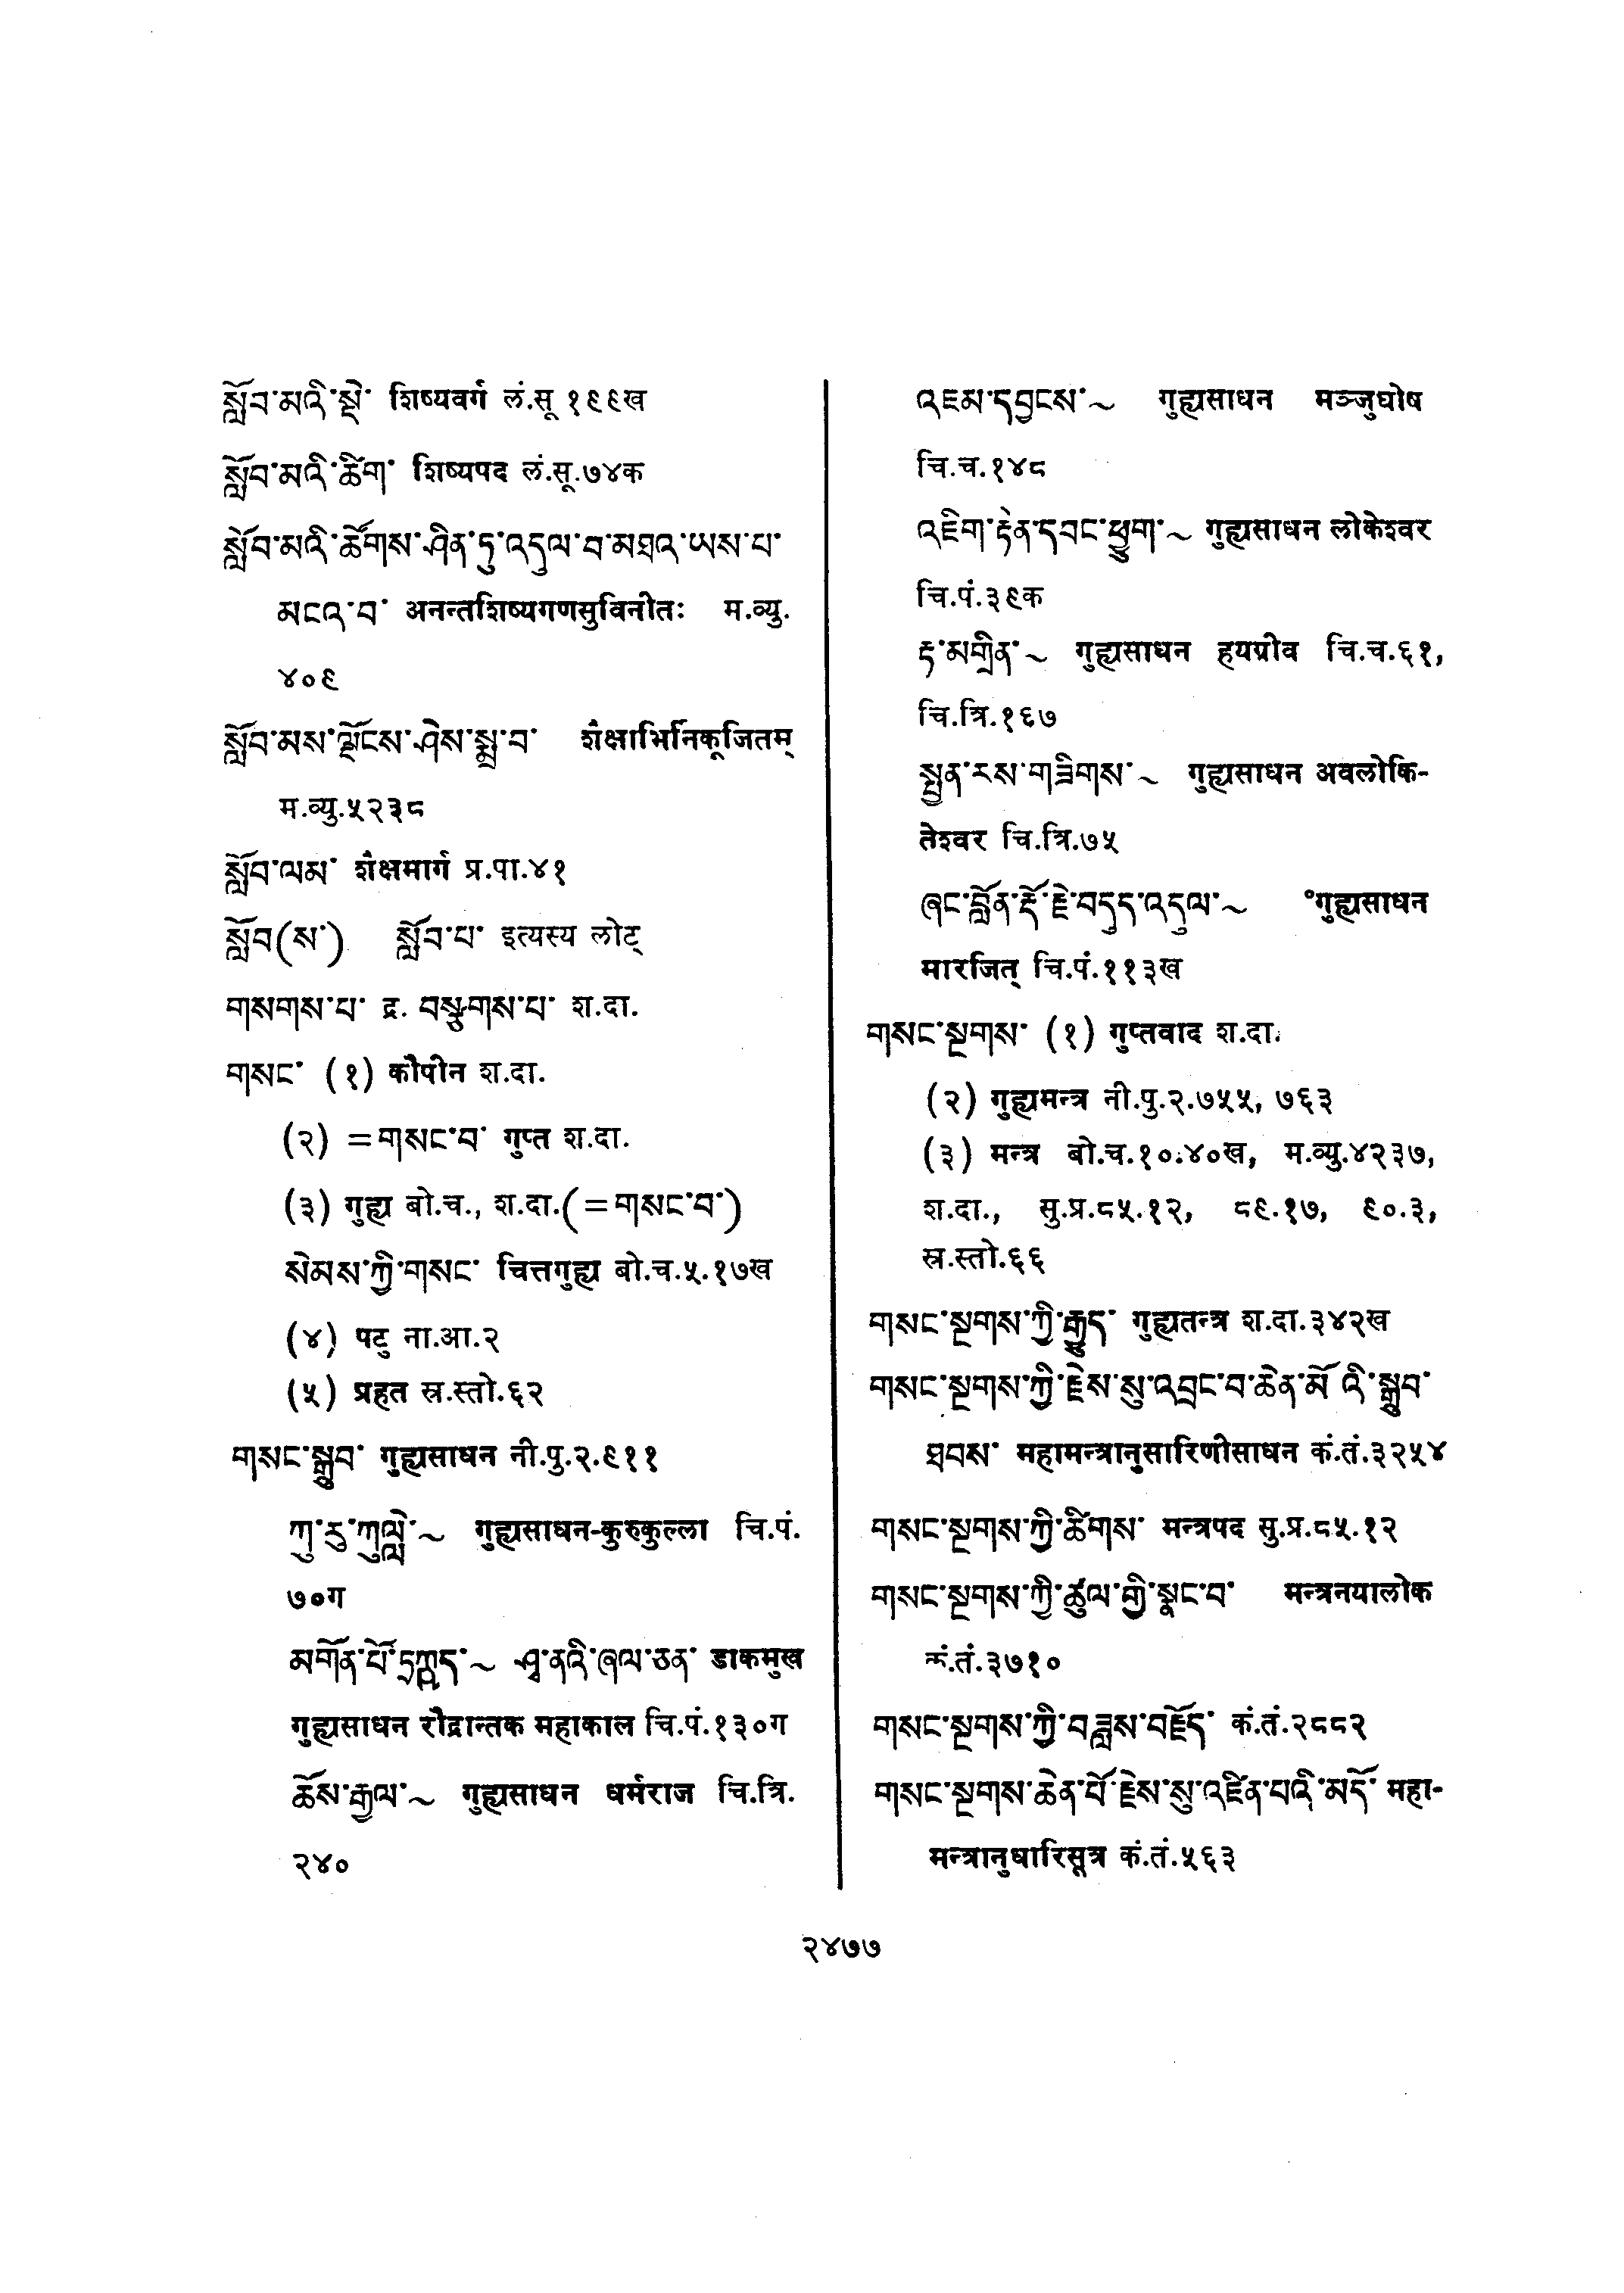 སློབ་མའི་སྡེ་ शिष्यवर्ग लं.सू १९९ख
སློབ་མའི་ཚིག་ शिष्यपद लं.सू.७४क
སློབ་མའི་ཚོགས་ཤིན་ཏུ་འདུལ་བ་མཐའ་ཡས་པ་
མངའ་བ་ अनन्तशिष्यगणसुविनीतः म.व्यु.
४०९
སློབ་མས་ལྗོངས་ཤེས་སྨྲ་བ་ शैक्षाभिर्निकूजितम्
म.व्यु.५२३८
སློབ་ལམ་ शैक्षमार्ग प्र.पा.४१
སློབ(ས་) སློབ་པ་ इत्यस्य लोट्
གསགས་པ་ द्र. བསྩགས་པ་ श.दा.
གསང་ (१) कौपीन श.दा.
(२) =གསང་བ་ गुप्त श.दा.
(३) गुह्य बो.च., श.दा.(=གསང་བ་)
སེམས་ཀྱི་གསང་ चित्तगुह्य बो.च.५.१७ख
(४) पटु ना.आ.२
(५) प्रहत स्र.स्तो.६२
གསང་སྒྲུབ་ गुह्यसाधन नी.पु.२.९११
ཀུ་རུ་ཀུལླེ་~ गुह्यसाधन-कुरुकुल्ला चि.पं.
७०ग
མགོན་པོ་~ ཤྭ་ནའི་ཞལ་ཅན་ डाकमुख
गुह्यसाधन रौद्रान्तक महाकाल चि.पं.१३०ग
ཆོས་རྒྱལ་~ गुह्यसाधन धर्मराज चि.त्रि.
२४०
འཇམ་དབྱངས་~ गुह्यसाधन मञ्जुघोष
चि.च.१४८
འཇིག་རྟེན་དབང་ཕྱུག་~ गुह्यसाधन लोकेश्वर
चि.पं.३९क
རྟ་མགྲིན་~ गुह्यसाधन हयग्रीव चि.च.६१,
चि.त्रि.१६७
སྤྱན་རས་གཟིགས་~ गुह्यसाधन अवलोकि-
तेश्वर चि.त्रि.७५
ཞང་བློན་རྡོ་རྗེ་བདུད་འདུལ་~ °गुह्यसाधन
मारजित् चि.पं.११३ख
གསང་སྔགས་ (१) गुप्तवाद श.दा.
(२) गुह्यमन्त्र नी.पु.२.७५५, ७६३
(३) मन्त्र बो.च.१०.४०ख, म.व्यु.४२३७,
श.दा., सु.प्र.८५.१२, ८९.१७, ९०.३,
स्र.स्तो.६६
གསང་སྔགས་ཀྱི་རྒྱུད་ गुह्यतन्त्र श.दा.३४२ख
གསང་སྔགས་ཀྱི་རྗེས་སུ་འབྲང་བ་ཆེན་མོ འི་སྒྲུབ་
ཐབས་ महामन्त्रानुसारिणीसाधन कं.तं.३२५४
གསང་སྔགས་ཀྱི་ཚིགས་ मन्त्रपद सु.प्र.८५.१२
གསང་སྔགས་ཀྱི་ཚུལ་གྱི་སྣང་བ་ मन्त्रनयालोक
कं.तं.३७१०
གསང་སྔགས་ཀྱི་བཟླས་བརྗོད་ कं.तं.२८८२
གསང་སྔགས་ཆེན་པོ་རྗེས་སུ་འཛིན་པའི་མདོ་ महा-
मन्त्रानुधारिसूत्र कं.तं.५६३
२४७७